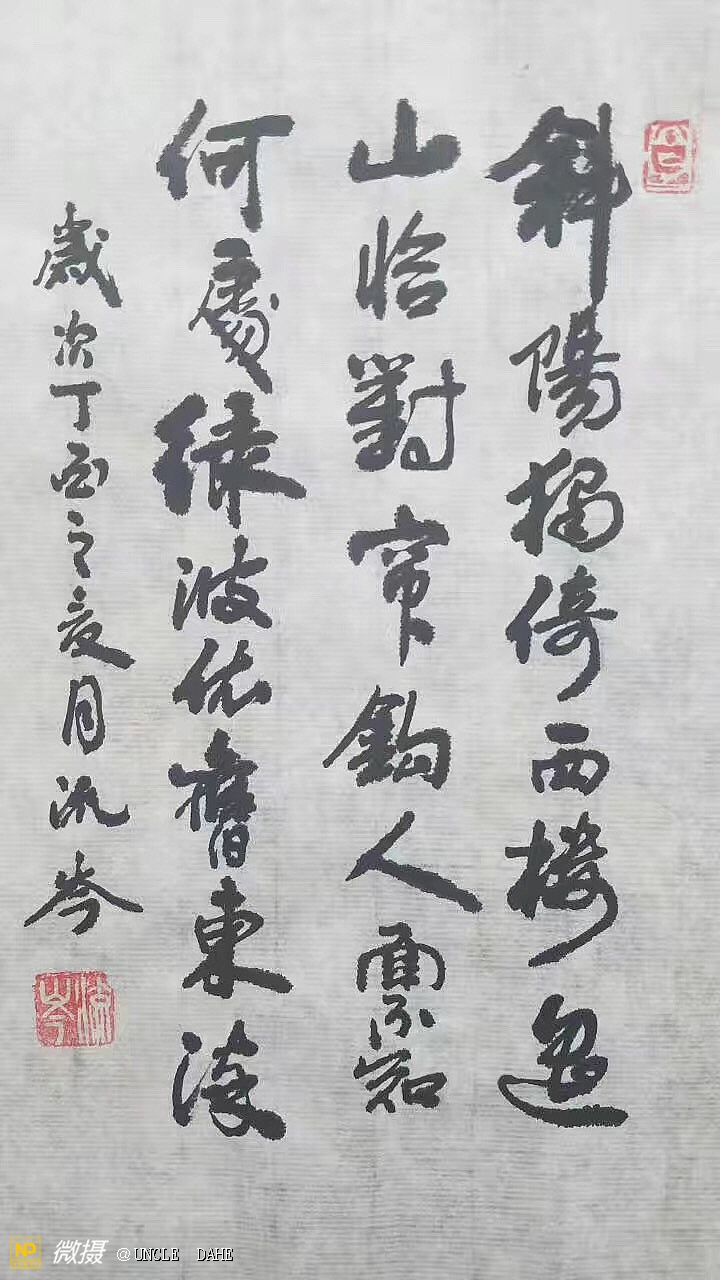 斜陽獨倚西樓遥
山恰對帘鈎人面不知
何處緑波依舊東流
歲次丁酉之夏月
微摄 @UNCLE DAHE